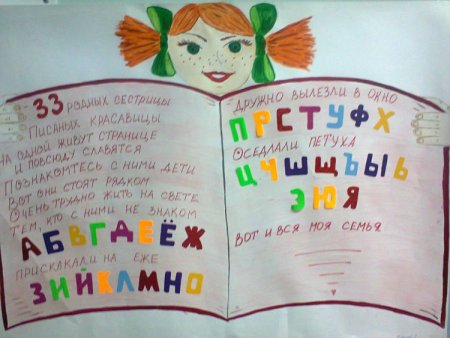 33 родных сестрицы
Писаных красавицы
на одной живут странице
и повсюду славятся
Познакомтесь с ними дети
Вот они стоят рядком
Очень трудно жить на свете
Тем, кто с ними не знаком
АБВГДЕЁЖ
прискакали на еже
ЗИЙКЛМНО
дружно вылезли в окно
ПРСТУФХ
Оседлали петуха
ЦЧШЩЪЫЬ
ЭЮЯ
Вот и вся моя семья